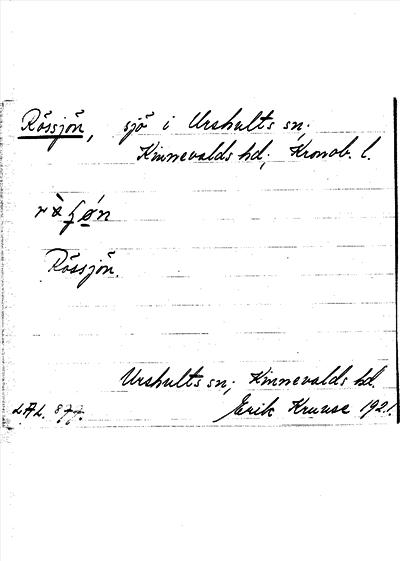 Rössjön, sjö i Urshults sn;
Kinnevalds hd; Kronob. l.
Rössjön.
Urshults sn; Kinnevalds hd.
L.A.L. 877. Erik Kruuse 1921.